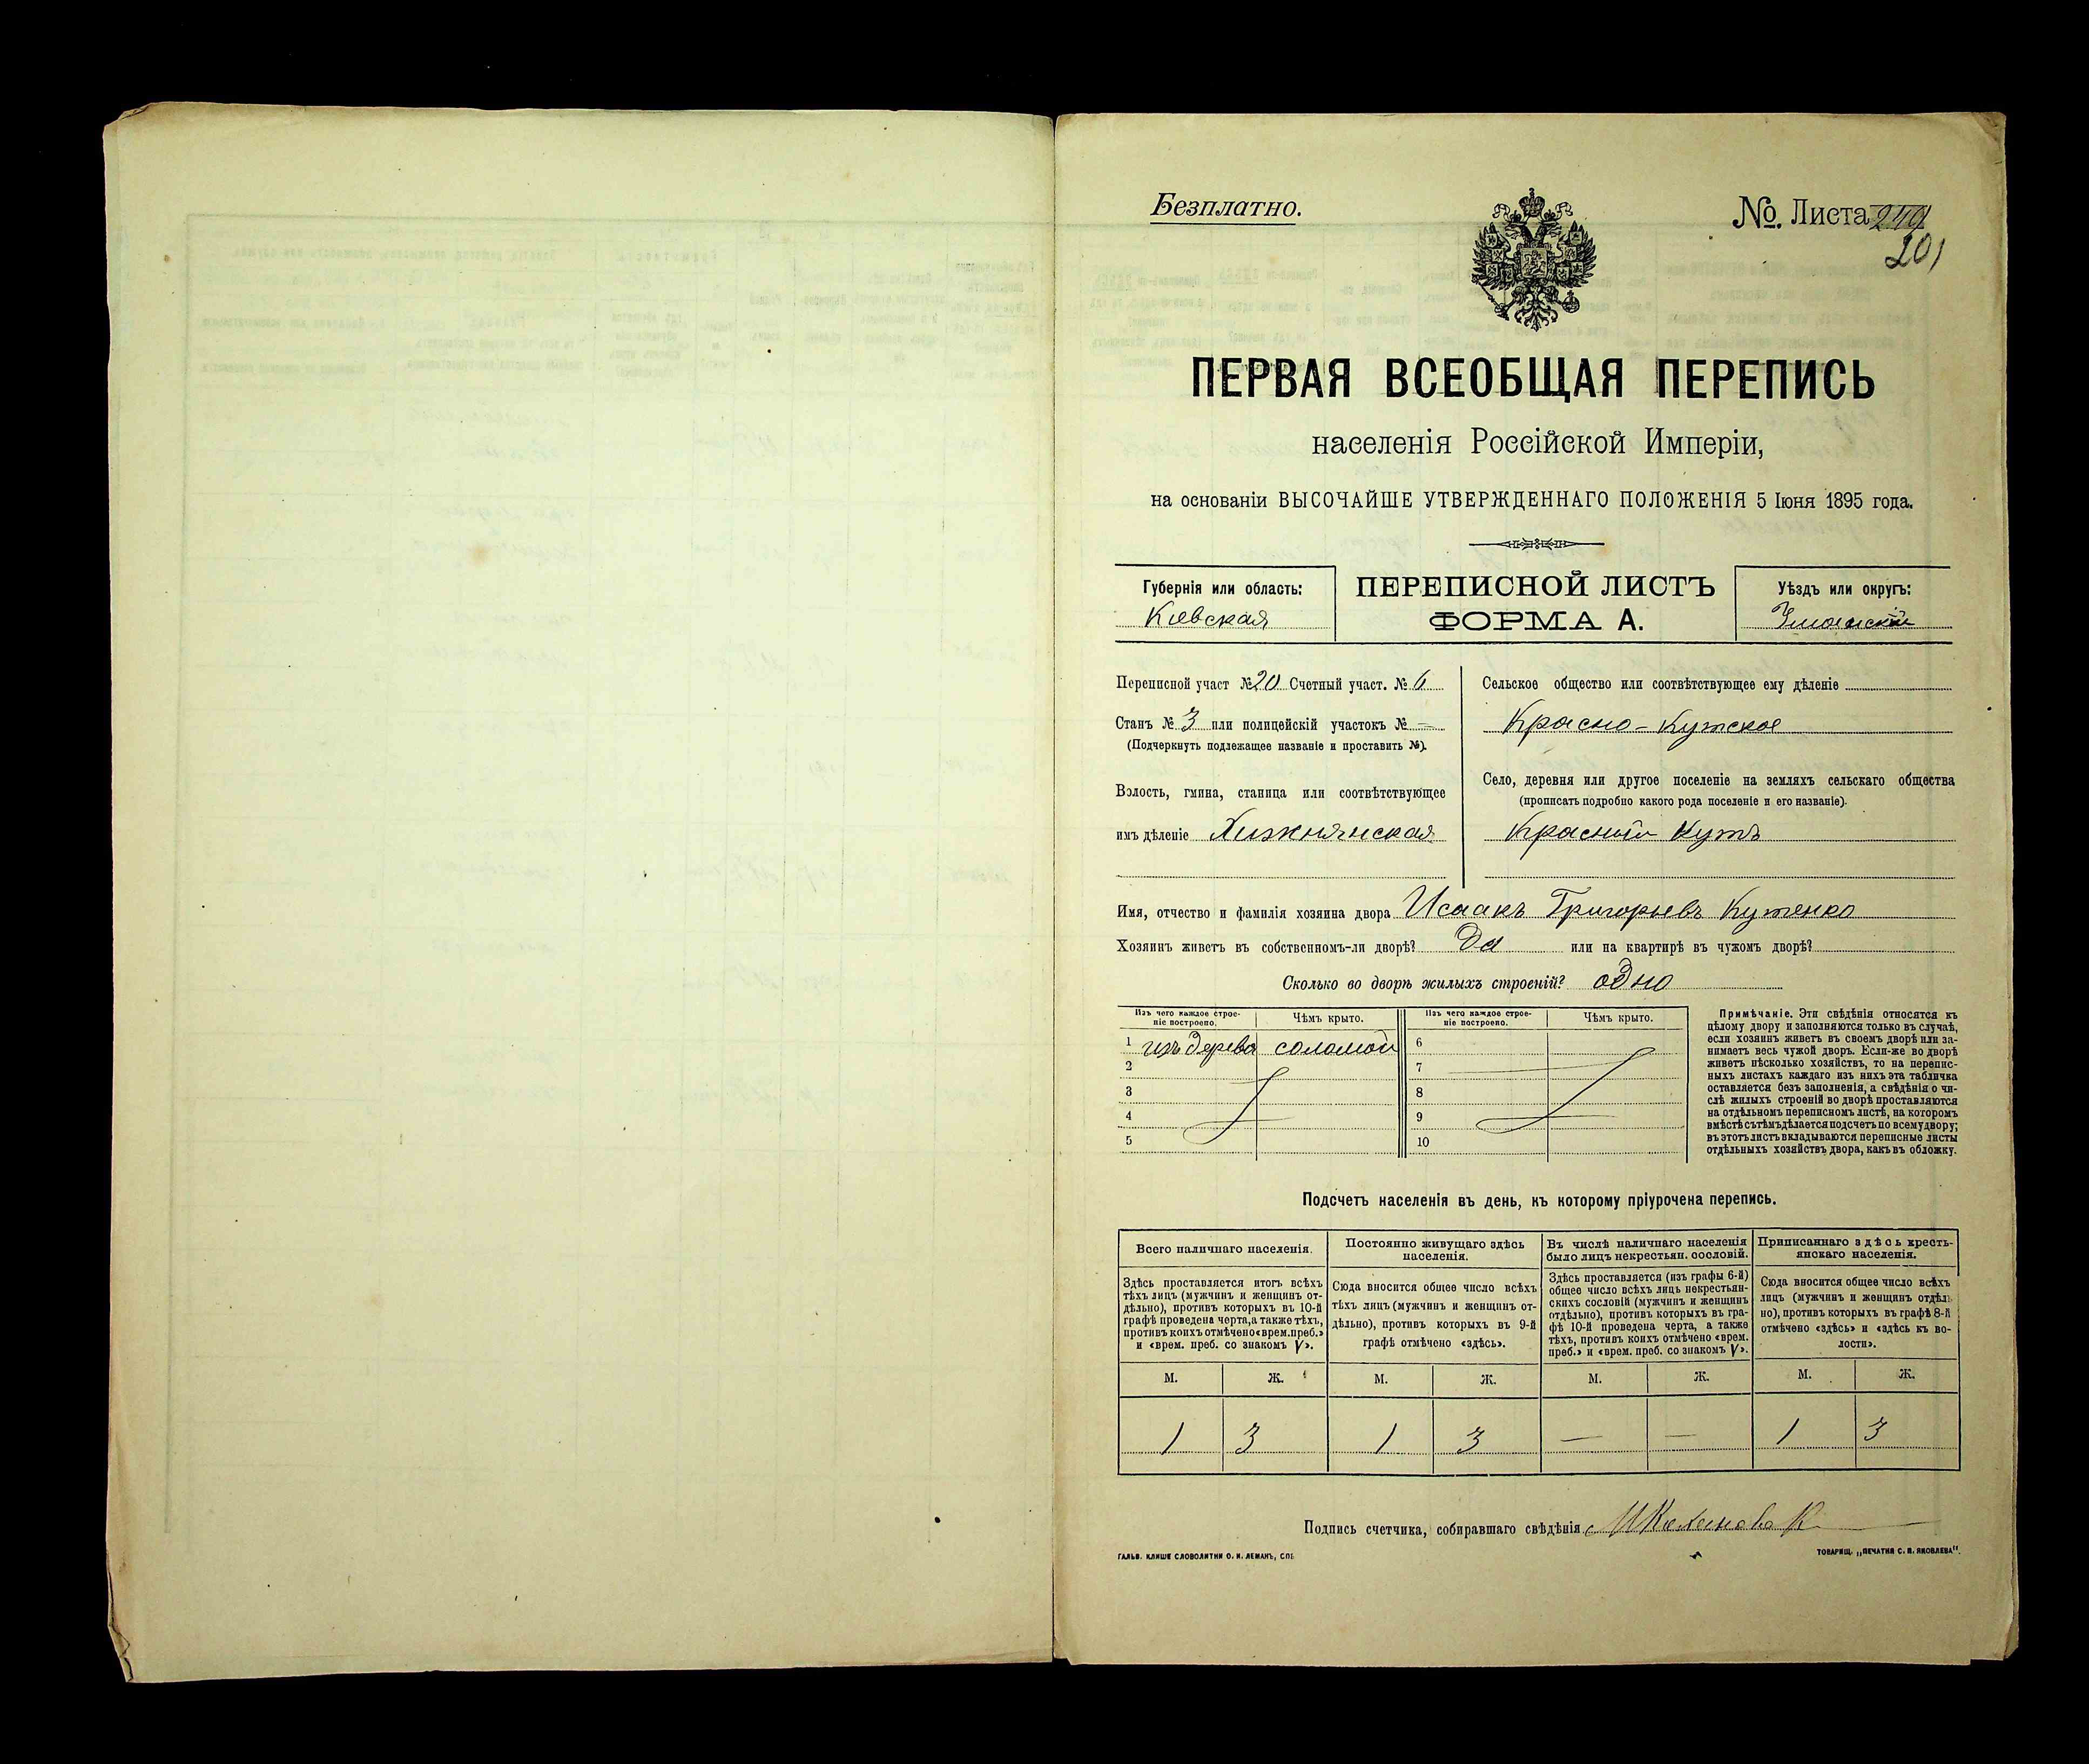 Безплатно.
№. Листа 249
201
ПЕРВАЯ ВСЕОБЩАЯ ПЕРЕПИСЬ
населенія Россійской Имперіи,
на основаніи ВЫСОЧАЙШЕ УТВЕРЖДЕННАГО ПОЛОЖЕНІЯ 5 Іюня 1895 года.
Губернія или область:
Кіевская
ПЕРЕПИСНОЙ ЛИСТЪ
ФОРМА А.
Уѣздъ или округъ:
Уманскій
Переписной участ № 20 Счетный участ. № 6
Станъ № 3 или полицейскій участокъ № —
(Подчеркнуть подлежащее названіе и проставить №).
Волость, гмина, станица или соотвѣтствующее
имъ дѣленіе Хижнянская
Сельское общество или соотвѣтствующее ему дѣленіе
Красно-Кутское
Село, деревня или другое поселеніе на земляхъ сельскаго общества
(прописать подробно какого рода поселеніе и его названіе).
Красный Кутъ
Имя, отчество и фамилія хозяина двора Исаакъ Григорьевъ Кутенко
Хозяинъ живетъ въ собственномъ-ли дворѣ? Да или на квартирѣ въ чужомъ дворѣ?
Сколько во дворѣ жилыхъ строеній? одно
Изъ чего каждое строе-
ніе построено.
Чѣмъ крыто.
Изъ чего каждое строе-
ніе построено.
Чѣмъ крыто.
1 изъ дерева соломой 6
2 7
3 8
4 9
5 10
Примѣчаніе. Эти свѣдѣнія относятся къ
цѣлому двору и заполняются только въ случаѣ,
если хозяинъ живетъ въ своемъ дворѣ или за-
нимаетъ весь чужой дворъ. Если-же во дворѣ
живетъ нѣсколько хозяйствъ, то на перепис-
ныхъ листахъ каждаго изъ нихъ эта табличка
оставляется безъ заполненія, а свѣдѣнія о чи-
слѣ жилыхъ строеній во дворѣ проставляются
на отдѣльномъ переписномъ листѣ, на которомъ
вмѣстѣ съ тѣмъ дѣлается подсчетъ по всему двору;
въ этотъ листъ вкладываются переписные листы
отдѣльныхъ хозяйствъ двора, какъ въ обложку.
Подсчетъ населенія въ день, къ которому пріурочена перепись.
Всего наличнаго населенія.
Здѣсь проставляется итогъ всѣхъ
тѣхъ лицъ (мужчинъ и женщинъ от-
дѣльно), противъ которыхъ въ 10-й
графѣ проведена черта, а также тѣхъ,
противъ коихъ отмѣчено «врем. преб.»
и «врем. преб. со знакомъ V».
Постоянно живущаго здѣсь
населенія.
Сюда вносится общее число всѣхъ
тѣхъ лицъ (мужчинъ и женщинъ от-
дѣльно), противъ которыхъ въ 9-й
графѣ отмѣчено «здѣсь».
Въ числѣ наличнаго населенія
было лицъ некрестьян. сословій.
Здѣсь проставляется (изъ графы 6-й)
общее число всѣхъ лицъ некрестьян-
скихъ сословій (мужчинъ и женщинъ
отдѣльно), противъ которыхъ въ гра-
фѣ 10-й проведена черта, а также
тѣхъ, противъ коихъ отмѣчено «врем.
преб.» и «врем. преб. со знакомъ V».
Приписаннаго здѣсь кресть-
янскаго населенія.
Сюда вносится общее число всѣхъ
лицъ (мужчинъ и женщинъ отдѣль-
но), противъ которыхъ въ графѣ 8-й
отмѣчено «здѣсь» и «здѣсь къ во-
лости».
М. Ж. М. Ж. М. Ж. М. Ж.
1 3 1 3 — — 1 3
Подпись счетчика, собиравшаго свѣдѣнія
ГАЛЬВ. КЛИШЕ СЛОВОЛИТНИ О. И. ЛЕМАНЪ, СПБ.
ТОВАРИЩ. „ПЕЧАТНЯ С. П. ЯКОВЛЕВА".